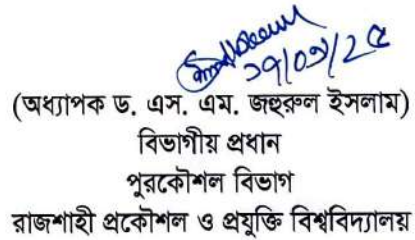 (অধ্যাপক ড. এস. এম. জহুরুল ইসলাম)
বিভাগীয় প্রধান
পুরকৌশল বিভাগ
রাজশাহী প্রকৌশল ও প্রযুক্তি বিশ্ববিদ্যালয়